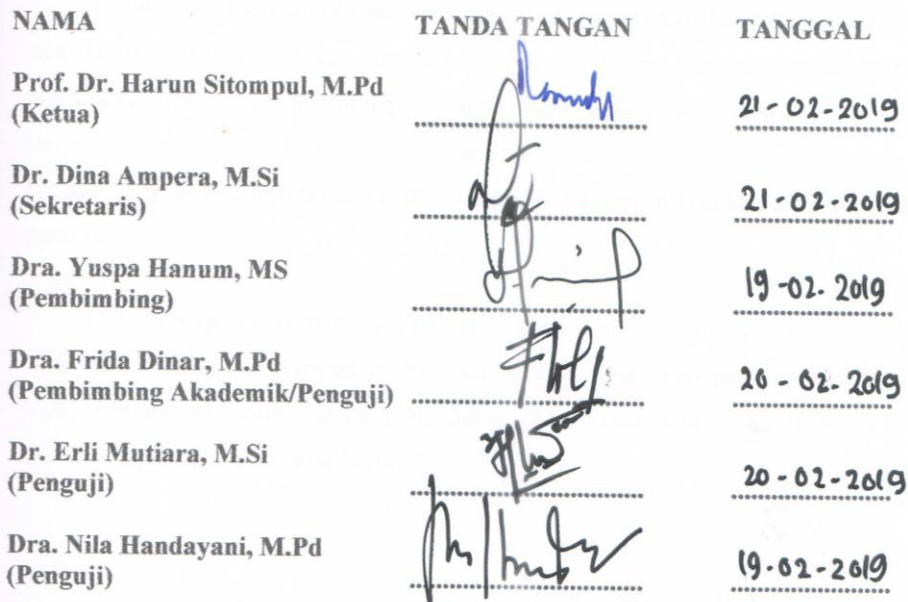 NAMA TANDA TANGAN TANGGAL
Prof. Dr. Harun Sitompul, M.Pd
(Ketua) 21-02-2019
Dr. Dina Ampera, M.Si
(Sekretaris) 21-02-2019
Dra. Yuspa Hanum, MS
(Pembimbing) 19-02-2019
Dra. Frida Dinar, M.Pd
(Pembimbing Akademik/Penguji) 20-02-2019
Dr. Erli Mutiara, M.Si
(Penguji) 20-02-2019
Dra. Nila Handayani, M.Pd
(Penguji) 19-02-2019